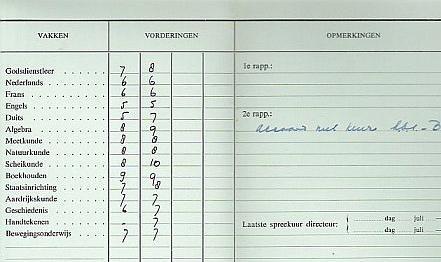 VAKKEN VORDERINGEN OPMERKINGEN
Godsdienstleer . . . . . . 7 8
Nederlands . . . . . . 6 6
Frans . . . . . . 6 6
Engels . . . . . . 5 5
Duits . . . . . . 5 7
Algebra . . . . . . 8 9
Meetkunde . . . . . . 8 8
Natuurkunde . . . . . . 8 8
Scheikunde . . . . . . 8 10
Boekhouden . . . . . . 9 9
Staatsinrichting . . . . . . 7 8
Aardrijkskunde . . . . . . 7 7
Geschiedenis . . . . . . 6 7
Handtekenen . . . . . . - 7
Bewegingsonderwijs . . . . 7 7
1e rapp.:
2e rapp.:
Laatste spreekuur directeur:
dag juli
dag juli